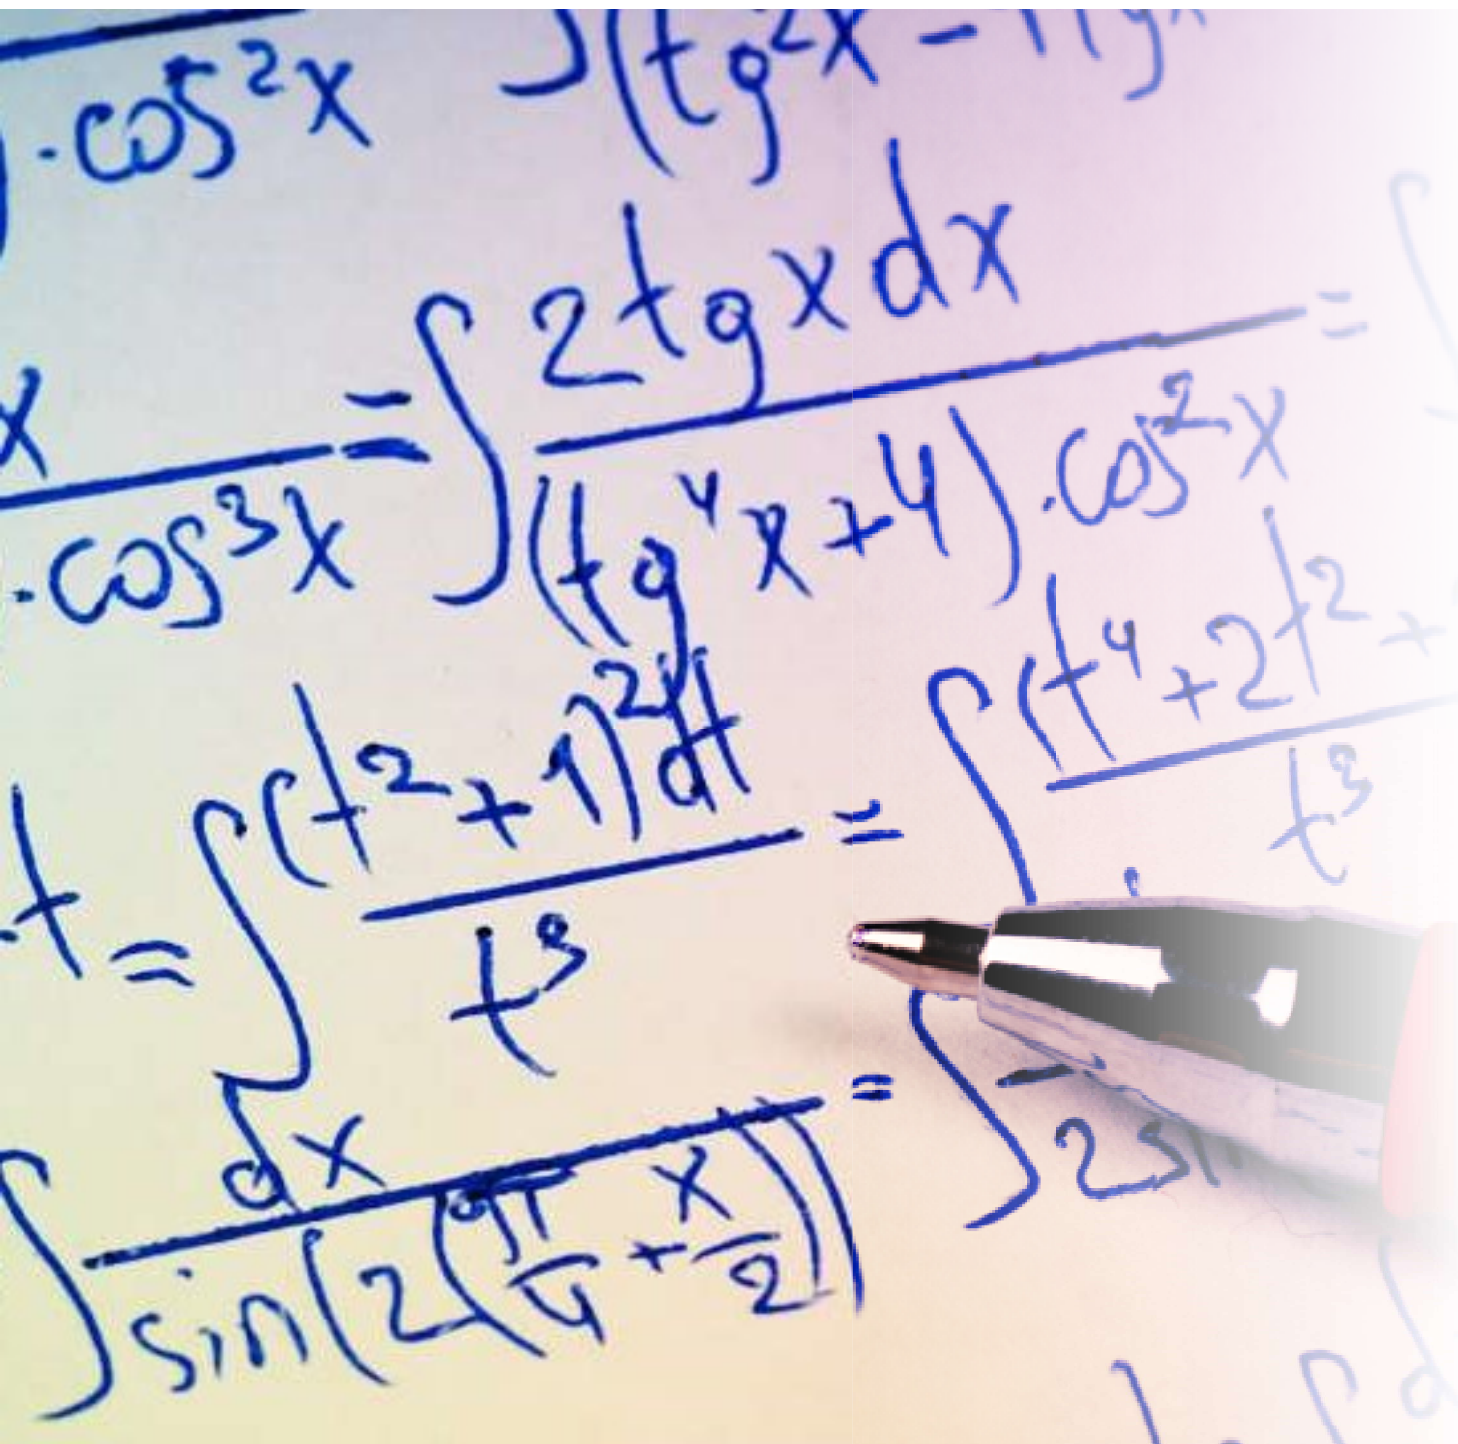 · cos²x ∫(tg²x −
x / · cos³x = ∫ 2tgxdx / (tg⁴x+4) · cos²x =
t = ∫ (t²+1)²dt / t³ = ∫ (t⁴+2t²+ / t³
∫ dx / sin(2(π/4 + x/2)) = ∫ / 2